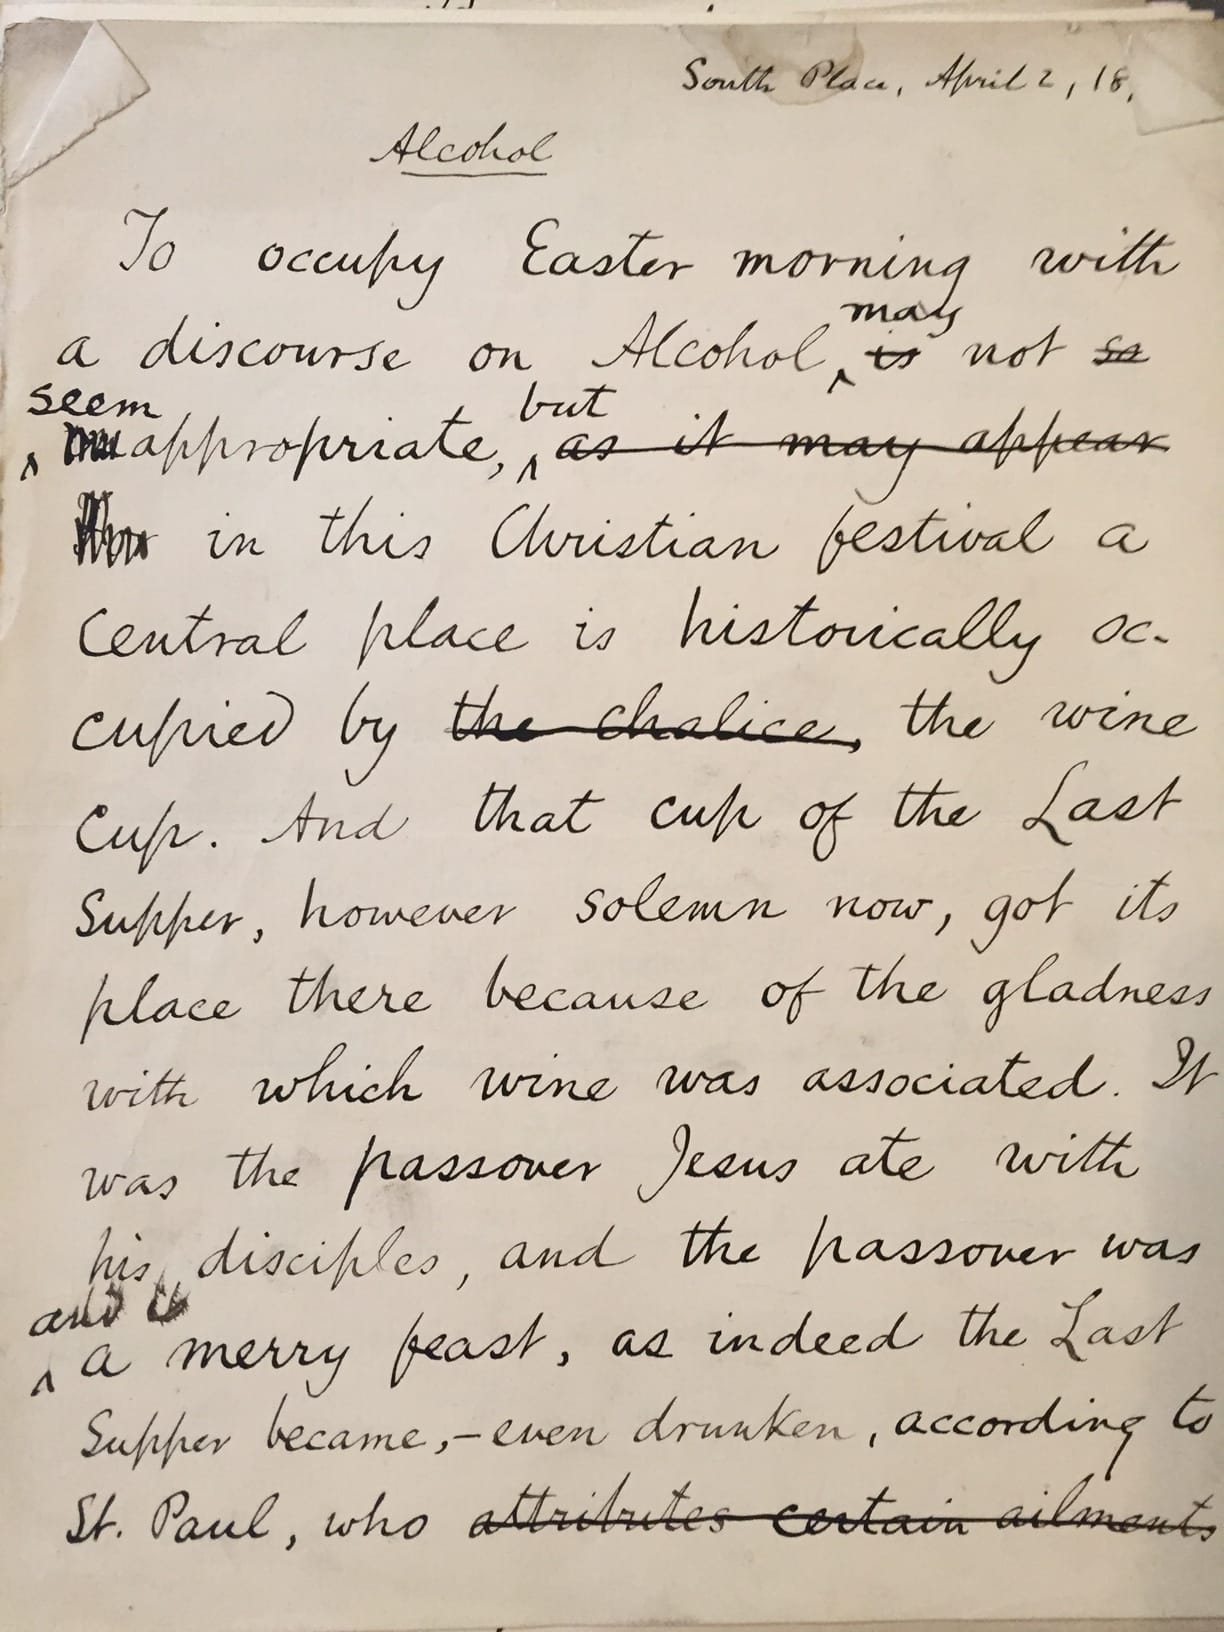 South Place, April 2, 18
Alcohol
To occupy Easter morning with
may
a discourse on Alcohol ^ is not so
seem but
^ appropriate, ^ as it may appear
in this Christian festival a
central place is historically oc-
cupied by the chalice, the wine
cup. And that cup of the Last
Supper, however solemn now, got its
place there because of the gladness
with which wine was associated. It
was the passover Jesus ate with
his disciples, and the passover was
and
^ a merry feast, as indeed the Last
Supper became,- even drunken, according to
St. Paul, who attributes certain ailments